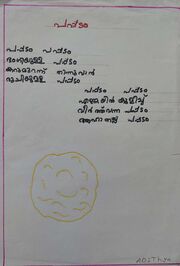 പപ്പടം
പപ്പടം പപ്പടം
ഭംഗിയുള്ള പപ്പടം
കറുമുറന്ന് തിന്നുവാൻ
രുചിയുള്ള പപ്പടം
പപ്പടം പപ്പടം
എണ്ണയിൽ കുളിച്ച്
വീർത്തുവന്ന പപ്പടം
ആഹാ നല്ല പപ്പടം
ADiThya